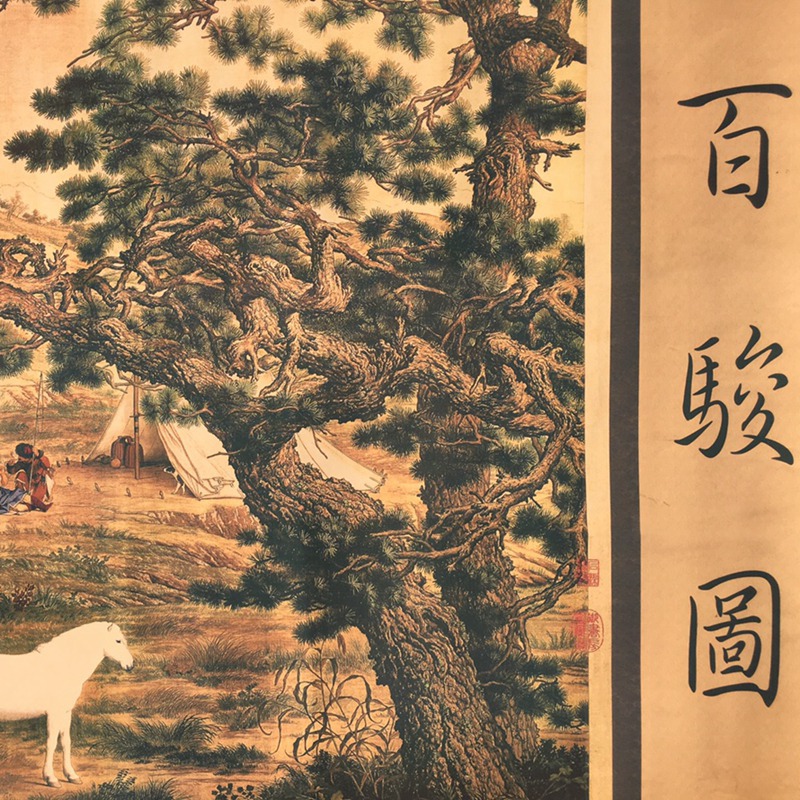 百駿圖